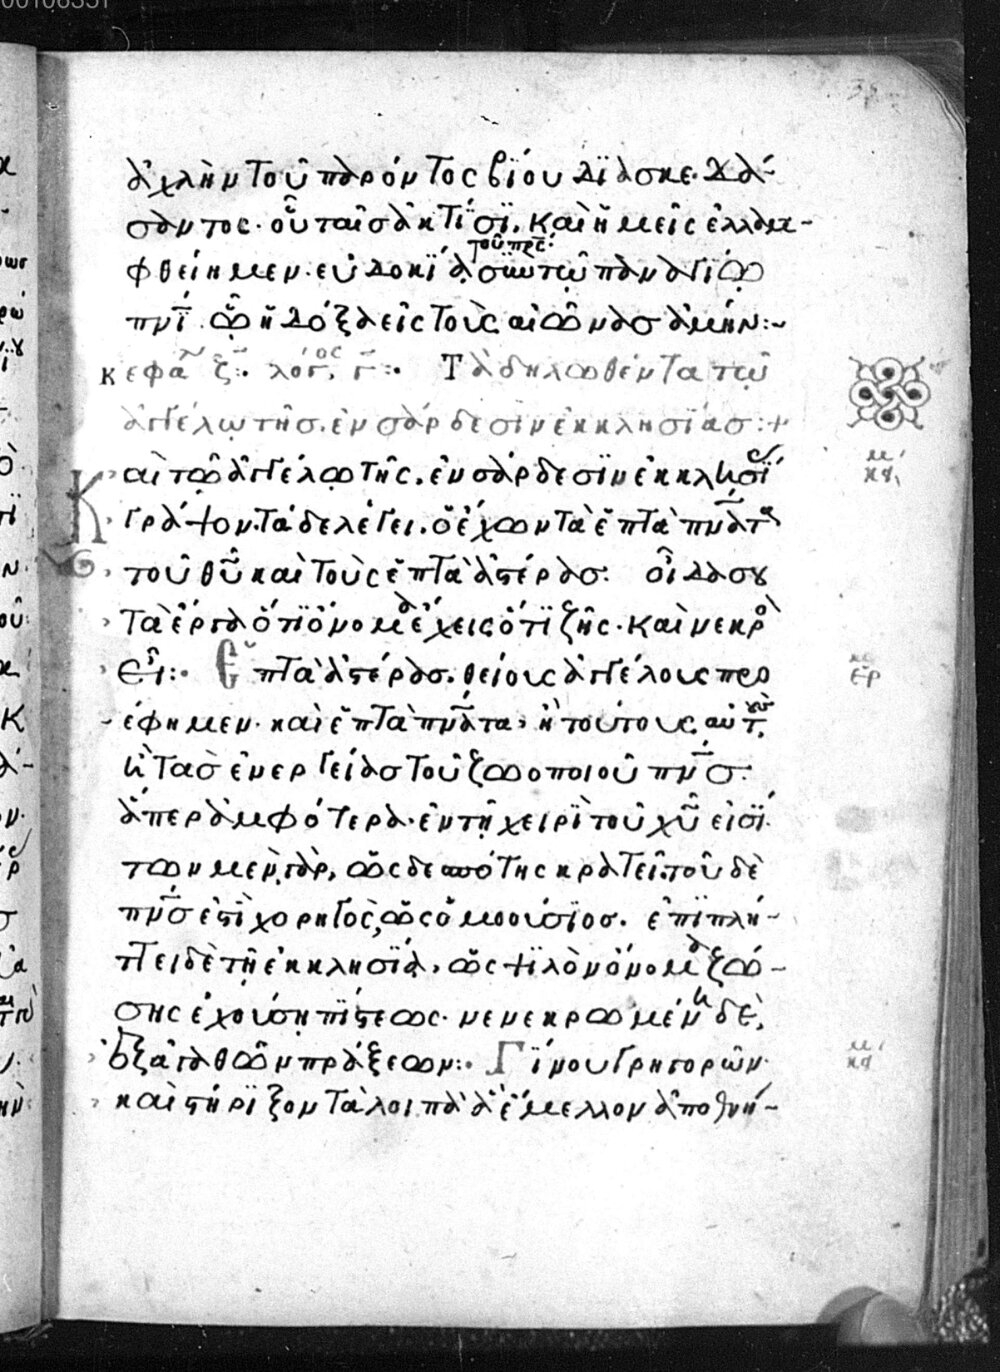 ἀχλὴν τοῦ παρόντος βίου διασκεδά-
σαντος. οὗ ταῖσ ἀκτῖσι, καὶ ἡμεῖς ἐλλαμ-
φθείημεν. εὐδοκίᾳ τοῦ πρς: σὺν τῷ παναγίῳ
πνι. ᾧ ἡ δόξα εἰς τοὺς αἰῶνασ ἀμήν:~
κεφα ζ:. λόγος, γ:. Τὰ δηλωθέντα τῷ
ἀγγέλῳ τῆσ ἐν σάρδεσιν ἐκκλησίασ:+
Καὶ τῷ ἀγγέλῳ τῆς ἐν σάρδεσιν ἐκκλησί
γράψον. Τάδε λέγει. ὁ ἔχων τὰ ἑπτὰ πνατα
τοῦ θῦ καὶ τοὺς ἑπτὰ ἀστέρασ. οἶδα σου
τὰ ἔργα ὅτι ὄνομα ἔχεις ὅτι ζῇς. καὶ νεκρὸ
εἶ:. Ἑπτὰ ἀστέρασ. θείους ἀγγέλους προ
έφημεν. καὶ ἑπτὰ πνατα, ἢ τούτους αὐτ
ἢ τὰσ ἐνεργείασ τοῦ ζωοποιοῦ πνσ.
ἅπερ ἀμφότερα. ἐν τῇ χειρὶ τοῦ χῦ εἰσί.
τῶν μὲν γὰρ, ὡς δεσπότης κρατεῖ. τοῦ δὲ
πνσ ἐστὶ χορηγὸς, ὡς ὁμοούσιοσ. ἐπιπλή-
ττει δὲ τῇ ἐκκλησίᾳ, ὡς ψιλὸν ὄνομα ζώ-
σης ἐχούσῃ πίστεως. νενεκρωμένη δὲ,
ἐξ ἀγαθῶν πράξεων:. Γίνου γρηγορῶν.
καὶ στήριξον τὰ λοιπὰ ἃ ἔμελλον ἀποθνή-